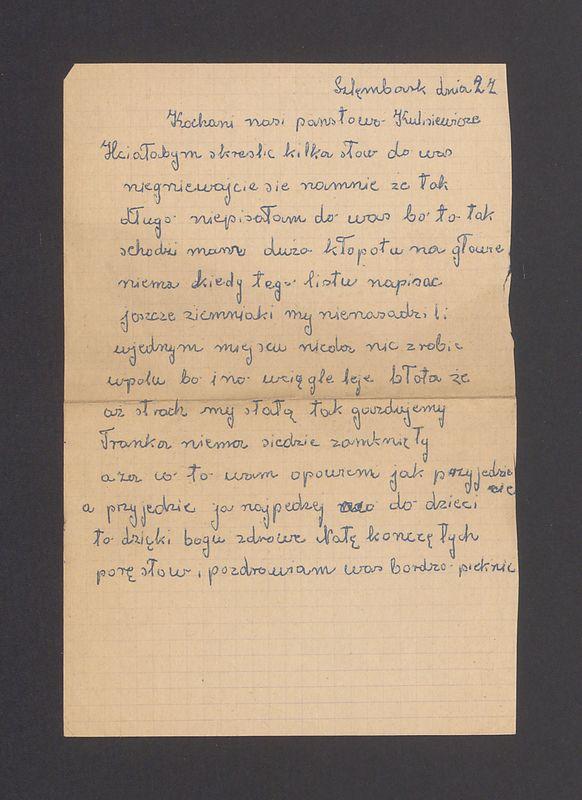 Szlęmbark dnia 27
Kochani nasi państowo Kulisiewicze
Hciałabym skreslic kilka słow do was
niegniewajcie sie namnie że tak
długo niepisałam do was bo to tak
schodzi mamy dużo kłopotu na głowie
niema kiedy tego listu napisac
joszcze ziemniaki my nienasadzili
wjednym miejscu niedoz nic zrobic
wpolu bo ino wciągle leje błota że
aż strach my stałą tak gazdujemy
Franka niema siedzie zamknięty
aza co to wam opowiem jak przyjedzie
cie
a przyjedzie jo najpedzej do dzieci
to dzięki bogu zdrowe Natę konczę tych
porę słow i pozdrawiam was bardzo pieknie